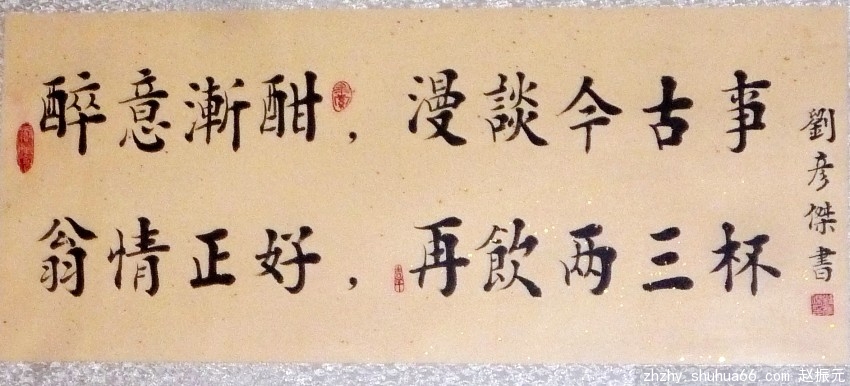 醉意漸酣，漫談今古事
翁情正好，再飲两三杯
劉彦傑書
zhzhy.shuhua66.com 赵振元